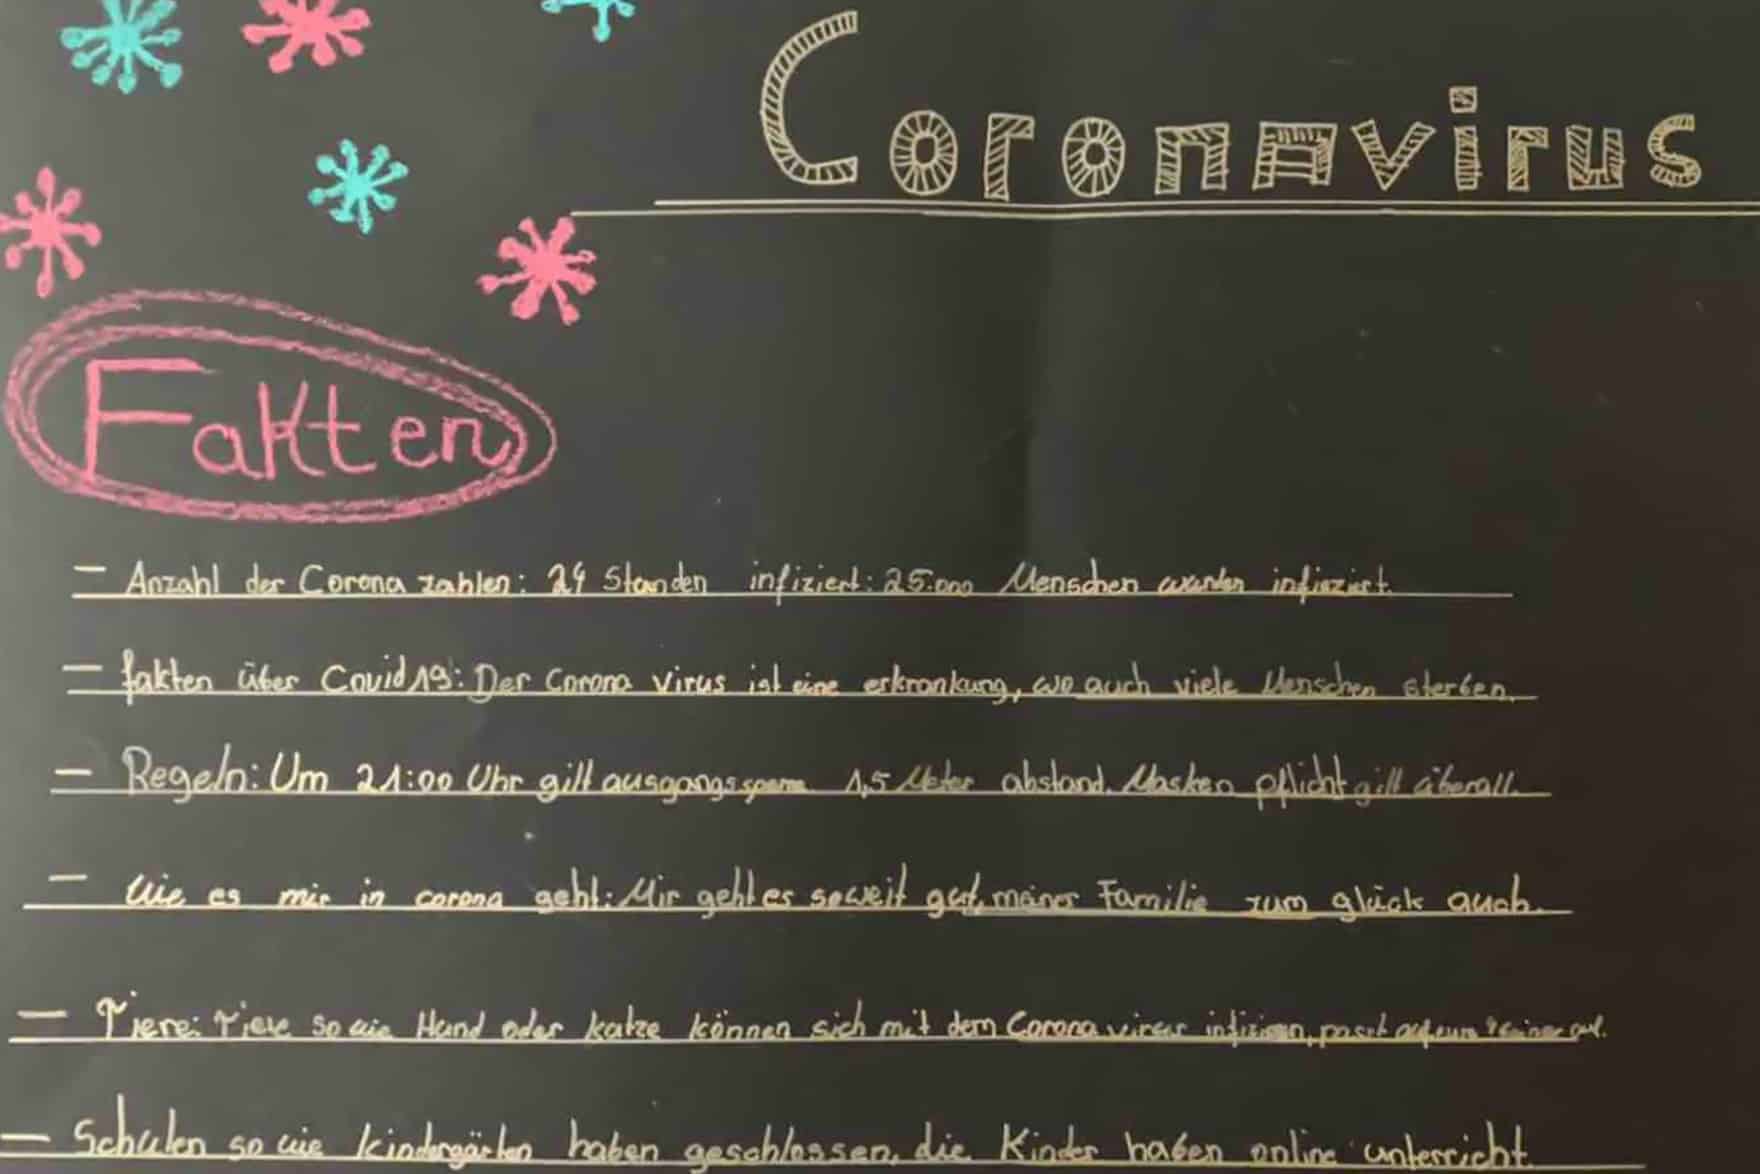 Coronavirus
Fakten
- Anzahl der Corona zahlen: 24 Standen infiziert: 25.000 Menschen wurden infieziert.
- fakten über Covid19: Der Corona virus ist eine erkrankung, wo auch viele Menschen sterben.
- Regeln: Um 21:00 Uhr gilt ausgangssperre 1,5 Meter abstand. Masken pflicht gilt überall.
- Wie es mir in corona geht: Mir geht es soweit gut, meiner Familie zum glück auch.
- Tiere: Tiere so wie Hund oder katze können sich mit dem Corona virus infiziren, passt auf eure
- Schulen so wie kindergärten haben geschlossen, die Kinder haben online unterricht.